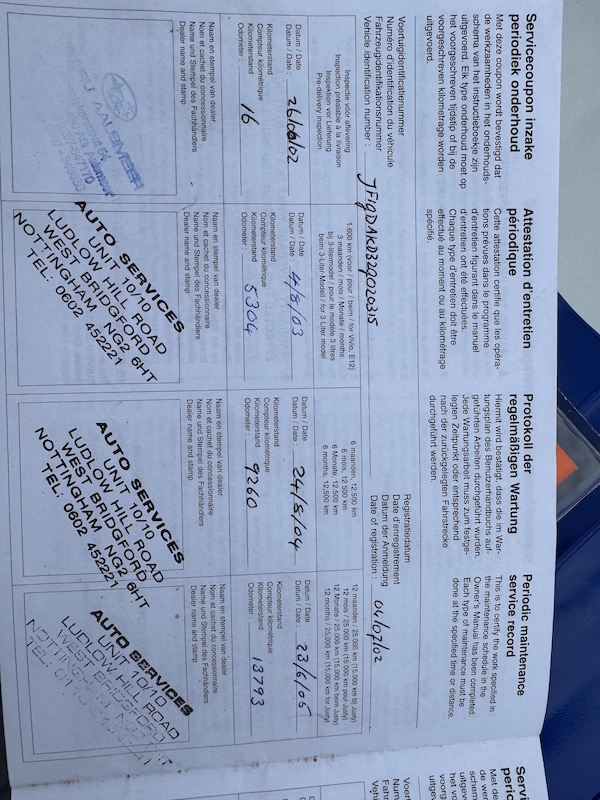 Servicecoupon inzake
periodiek onderhoud
Met deze coupon wordt bevestigd dat
de werkzaamheden in het onderhouds-
schema van het instructieboekje zijn
uitgevoerd. Elk type onderhoud moet op
het voorgeschreven tijdstip of bij de
voorgeschreven kilometrage worden
uitgevoerd.
Attestation d'entretien
périodique
Cette attestation certifie que les opéra-
tions prévues dans le programme
d'entretien figurant dans le manuel
d'entretien ont été effectuées.
Chaque type d'entretien doit être
effectué au moment ou au kilométrage
spécifié.
Protokoll der
regelmäßigen Wartung
Hiermit wird bestätigt, dass die im War-
tungsplan des Benutzerhandbuchs auf-
geführten Arbeiten durchgeführt wurden.
Jede Wartungsarbeit muss zum festge-
legten Zeitpunkt oder entsprechend
nach der zurückgelegten Fahrstrecke
durchgeführt werden.
Periodic maintenance
service record
This is to certify the work specified in
the maintenance schedule in the
Owner's Manual has been completed.
Each type of maintenance must be
done at the specified time or distance.
Voertuigidentificatienummer
Numéro d'identification du véhicule
Fahrzeugidentifikationsnummer
Vehicle identification number :
Registratiedatum
Date d'enregistrement
Datum der Anmeldung
Date of registration : 04/07/02
Inspectie vóór aflevering
Inspection préalable à la livraison
Inspektion vor Lieferung
Pre-delivery inspection
Datum / Date
Datum / Date : 26/06/02
Kilometerstand
Compteur kilométrique
Kilometerstand
Odometer : 16
Naam en stempel van dealer
Nom et cachet du concessionnaire
Name und Stempel des Fachhändlers
Dealer name and stamp
1 600 km (voor / pour / beim / for Vivio, E12)
3 maanden / mois / Monate / months
bij 3-litermodel / pour le modèle 3 litres
beim 3-Liter-Modell / for 3 Liter model
Datum / Date
Datum / Date : 4/8/03
Kilometerstand
Compteur kilométrique
Kilometerstand
Odometer : 5304
Naam en stempel van dealer
Nom et cachet du concessionnaire
Name und Stempel des Fachhändlers
Dealer name and stamp
AUTO SERVICES
UNIT 10/10
LUDLOW HILL ROAD
WEST BRIDGFORD
NOTTINGHAM NG2 6HT
TEL: 0602 452221
6 maanden, 12.500 km
6 mois, 12 500 km
6 Monate, 12.500 km
6 months, 12,500 km
Datum / Date
Datum / Date : 24/5/04
Kilometerstand
Compteur kilométrique
Kilometerstand
Odometer : 9260
Naam en stempel van dealer
Nom et cachet du concessionnaire
Name und Stempel des Fachhändlers
Dealer name and stamp
AUTO SERVICES
UNIT 10/10
LUDLOW HILL ROAD
WEST BRIDGFORD
NOTTINGHAM NG2 6HT
TEL: 0602 452221
12 maanden / 25.000 km (15.000 km bij Justy)
12 mois / 25.000 km (15 000 km pour Justy)
12 Monate / 25.000 km (15.000 km beim Justy)
12 months / 25,000 km (15,000 km for Justy)
Datum / Date
Datum / Date : 23/6/05
Kilometerstand
Compteur kilométrique
Kilometerstand
Odometer : 13793
Naam en stempel van dealer
Nom et cachet du concessionnaire
Name und Stempel des Fachhändlers
Dealer name and stamp
AUTO SERVICES
UNIT 10/10
LUDLOW HILL ROAD
WEST BRIDGFORD